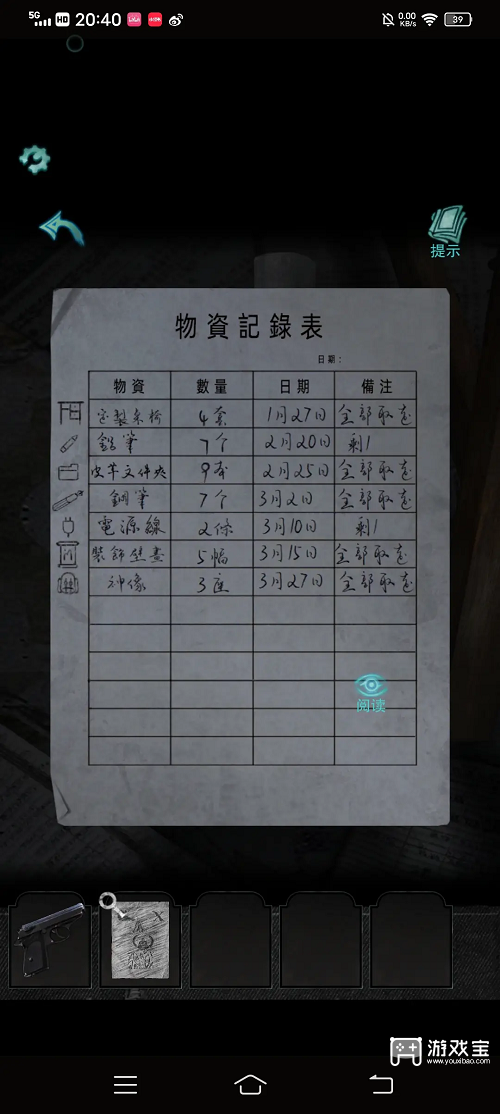 5G HD 20:40 0.00 KB/s 39
提示
物資記錄表
日期：
物資 數量 日期 備注
定製桌椅 4套 1月27日 全部取走
鉛筆 7个 2月20日 剩1
皮革文件夾 9本 2月25日 全部取走
鋼筆 7个 3月2日 全部取走
電源線 2條 3月10日 剩1
裝飾壁畫 5幅 3月15日 全部取走
神像 3座 3月27日 全部取走
阅读
游戏宝
www.youxibao.com